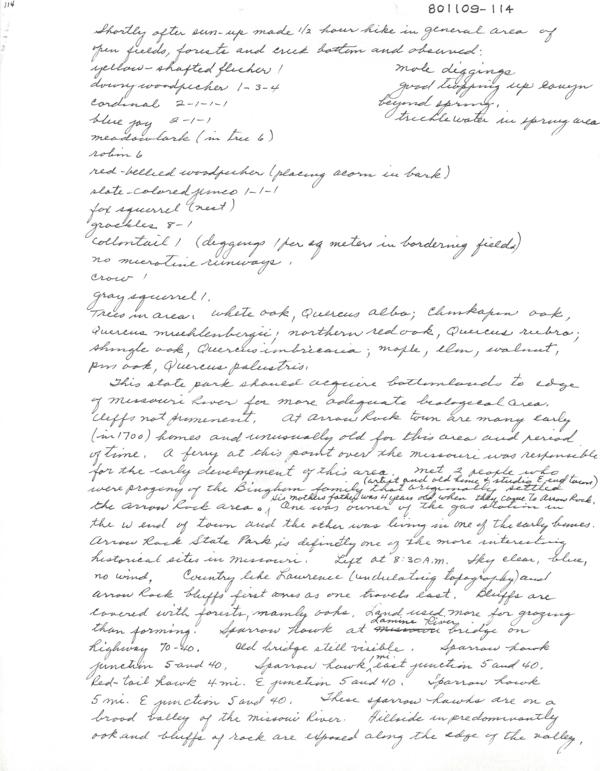 114
801109-114
Shortly after sun-up made 1/2 hour hike in general area of
open fields, forests and creek bottom and observed:
yellow-shafted flicker 1
mole diggings
downy woodpecker 1-3-4
good trapping up canyon
cardinal 2-1-1-1
beyond spring.
blue jay 2-1-1
trickle water in spring area
meadowlark (in tree 6)
robin 6
red-bellied woodpecker (placing acorn in bark)
slate-colored junco 1-1-1
fox squirrel (nest)
grackles 8-1
cottontail 1 (diggings 1 per sq meters in bordering fields)
no microtine runways.
crow 1
gray squirrel 1.
Trees in area: white oak, Quercus alba; Chinkapin oak,
Quercus muehlenbergii; northern red oak, Quercus rubra;
shingle oak, Quercus imbricaria; maple, elm, walnut,
pin oak, Quercus palustris.
This state park should acquire bottomlands to edge
of Missouri River for more adequate biological area.
Cliffs not prominent. At Arrow Rock town are many early
(in 1700) homes and unusually old for this area and period
of time. A ferry at this point over the Missouri was responsible
for the early development of this area. Met 2 people who
(artist and old time & studio E end town)
were progeny of the Bingham family that originally settled
His mothers father was 4 years old when they came to Arrow Rock.
the Arrow Rock area. One was owner of the gas station in
the W end of town and the other was living in one of the early homes.
Arrow Rock State Park is definitly one of the more interesting
historical sites in Missouri. Left at 8:30 A.M. Sky clear, blue,
no wind. Country like Lawrence (undulating topography) and
Arrow Rock bluffs first ones as one travels east. Bluffs are
covered with forests, mainly oaks. Land used more for grazing
than farming. Sparrow hawk at Lamine River bridge on
highway 70-40. Old bridge still visible. Sparrow hawk
junction 5 and 40. Sparrow hawk 1 mi. east junction 5 and 40.
Red-tail hawk 4 mi. E junction 5 and 40. Sparrow hawk
5 mi. E junction 5 and 40. These sparrow hawks are on a
broad valley of the Missouri River. Hillside in predominantly
oak and bluffs of rock are exposed along the edge of the valley.